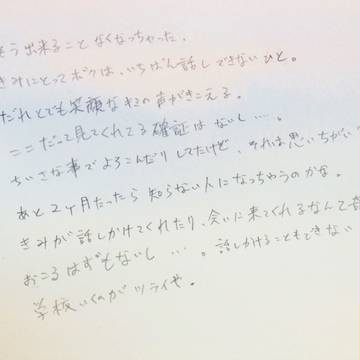 もう出来ることなくなっちゃった.
きみにとってボクは、いちばん話しできないひと。
だれとでも笑顔なキミの声がきこえる.
ここだって見てくれてる確証はないし…。
ちいさな事でよろこんだりしてたけど、それは思いちがい
あと2ヶ月たったら知らない人になっちゃうのかな。
きみが話しかけてくれたり、会いに来てくれるなんて奇
おこるはずもないし…。話しかけることもできない
学校いくのがツライや。